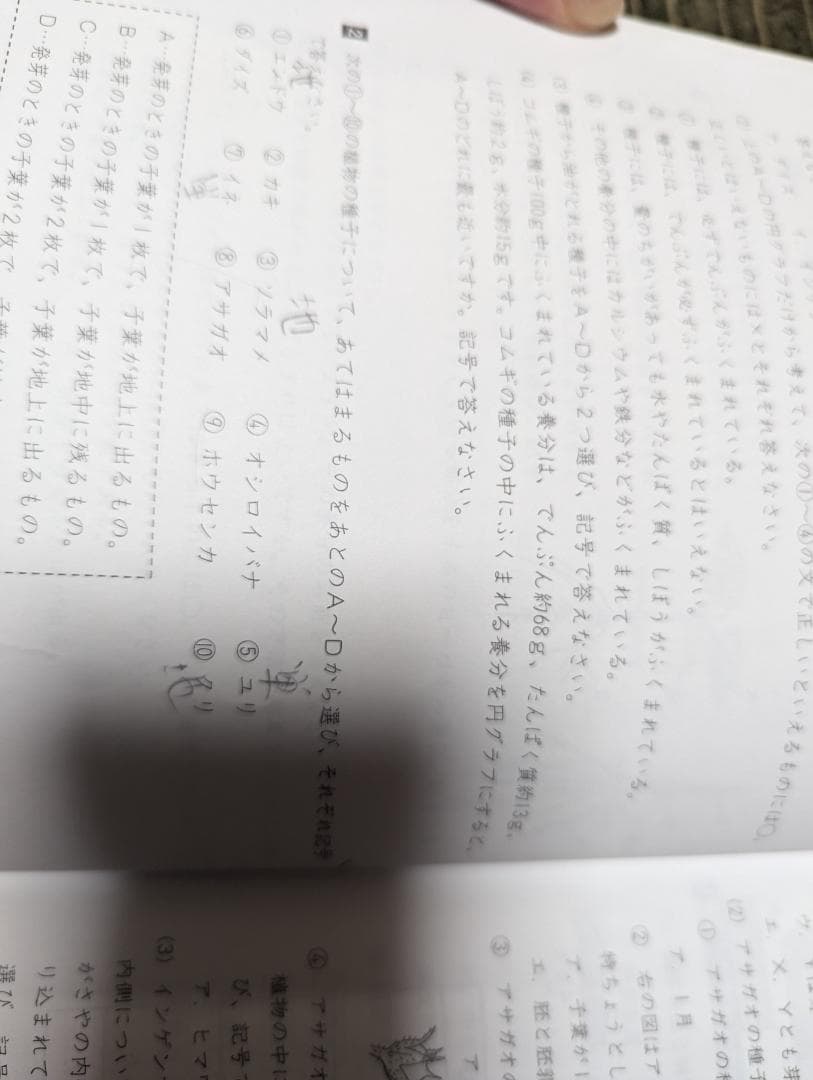 ア．ダイズ
② 上のA～Dの円グラフだけから考えて、次の①～④の文で正しいといえるものには○、
正しいとはいえないものには×とそれぞれ答えなさい。
① 種子には、必ずでんぷんがふくまれている。
② 種子には、でんぷんが必ずふくまれているとはいえない。
③ 種子には、量のちがいがあっても水やたんぱく質、しぼうがふくまれている。
④ その他の養分の中にはカルシウムや鉄分などがふくまれている。
(3) 種子から油がとれる種子をA～Dから2つ選び、記号で答えなさい。
(4) コムギの種子100g中にふくまれている養分は、でんぷん約68g、たんぱく質約13g、
しぼう約2g、水分約15gです。コムギの種子の中にふくまれる養分を円グラフにすると、
A～Dのどれに最も近いですか。記号で答えなさい。
2 次の①～⑩の植物の種子について、あてはまるものをあとのA～Dから選び、それぞれ記号
で答えなさい。
地 地 単
① エンドウ ② カキ ③ ソラマメ ④ オシロイバナ ⑤ ユリ
⑥ ダイズ ⑦ イネ ⑧ アサガオ ⑨ ホウセンカ ⑩ クリ
単 地
A…発芽のときの子葉が1枚で、子葉が地上に出るもの。
B…発芽のときの子葉が1枚で、子葉が地中に残るもの。
C…発芽のときの子葉が2枚で、子葉が地上に出るもの。
D…発芽のときの子葉が2枚で、子葉が
エ．X、Yとも芽
(2) アサガオの種子
① アサガオの種
ア．1月
② 右の図はア
ア．子葉が1
エ．胚と胚乳
③ アサガオの
ア
④ アサガオ
植物の中に
び、記号で
ア．ヒマワ
(3) インゲン
内側につい
がさやの内
り込まれて
選び、記号